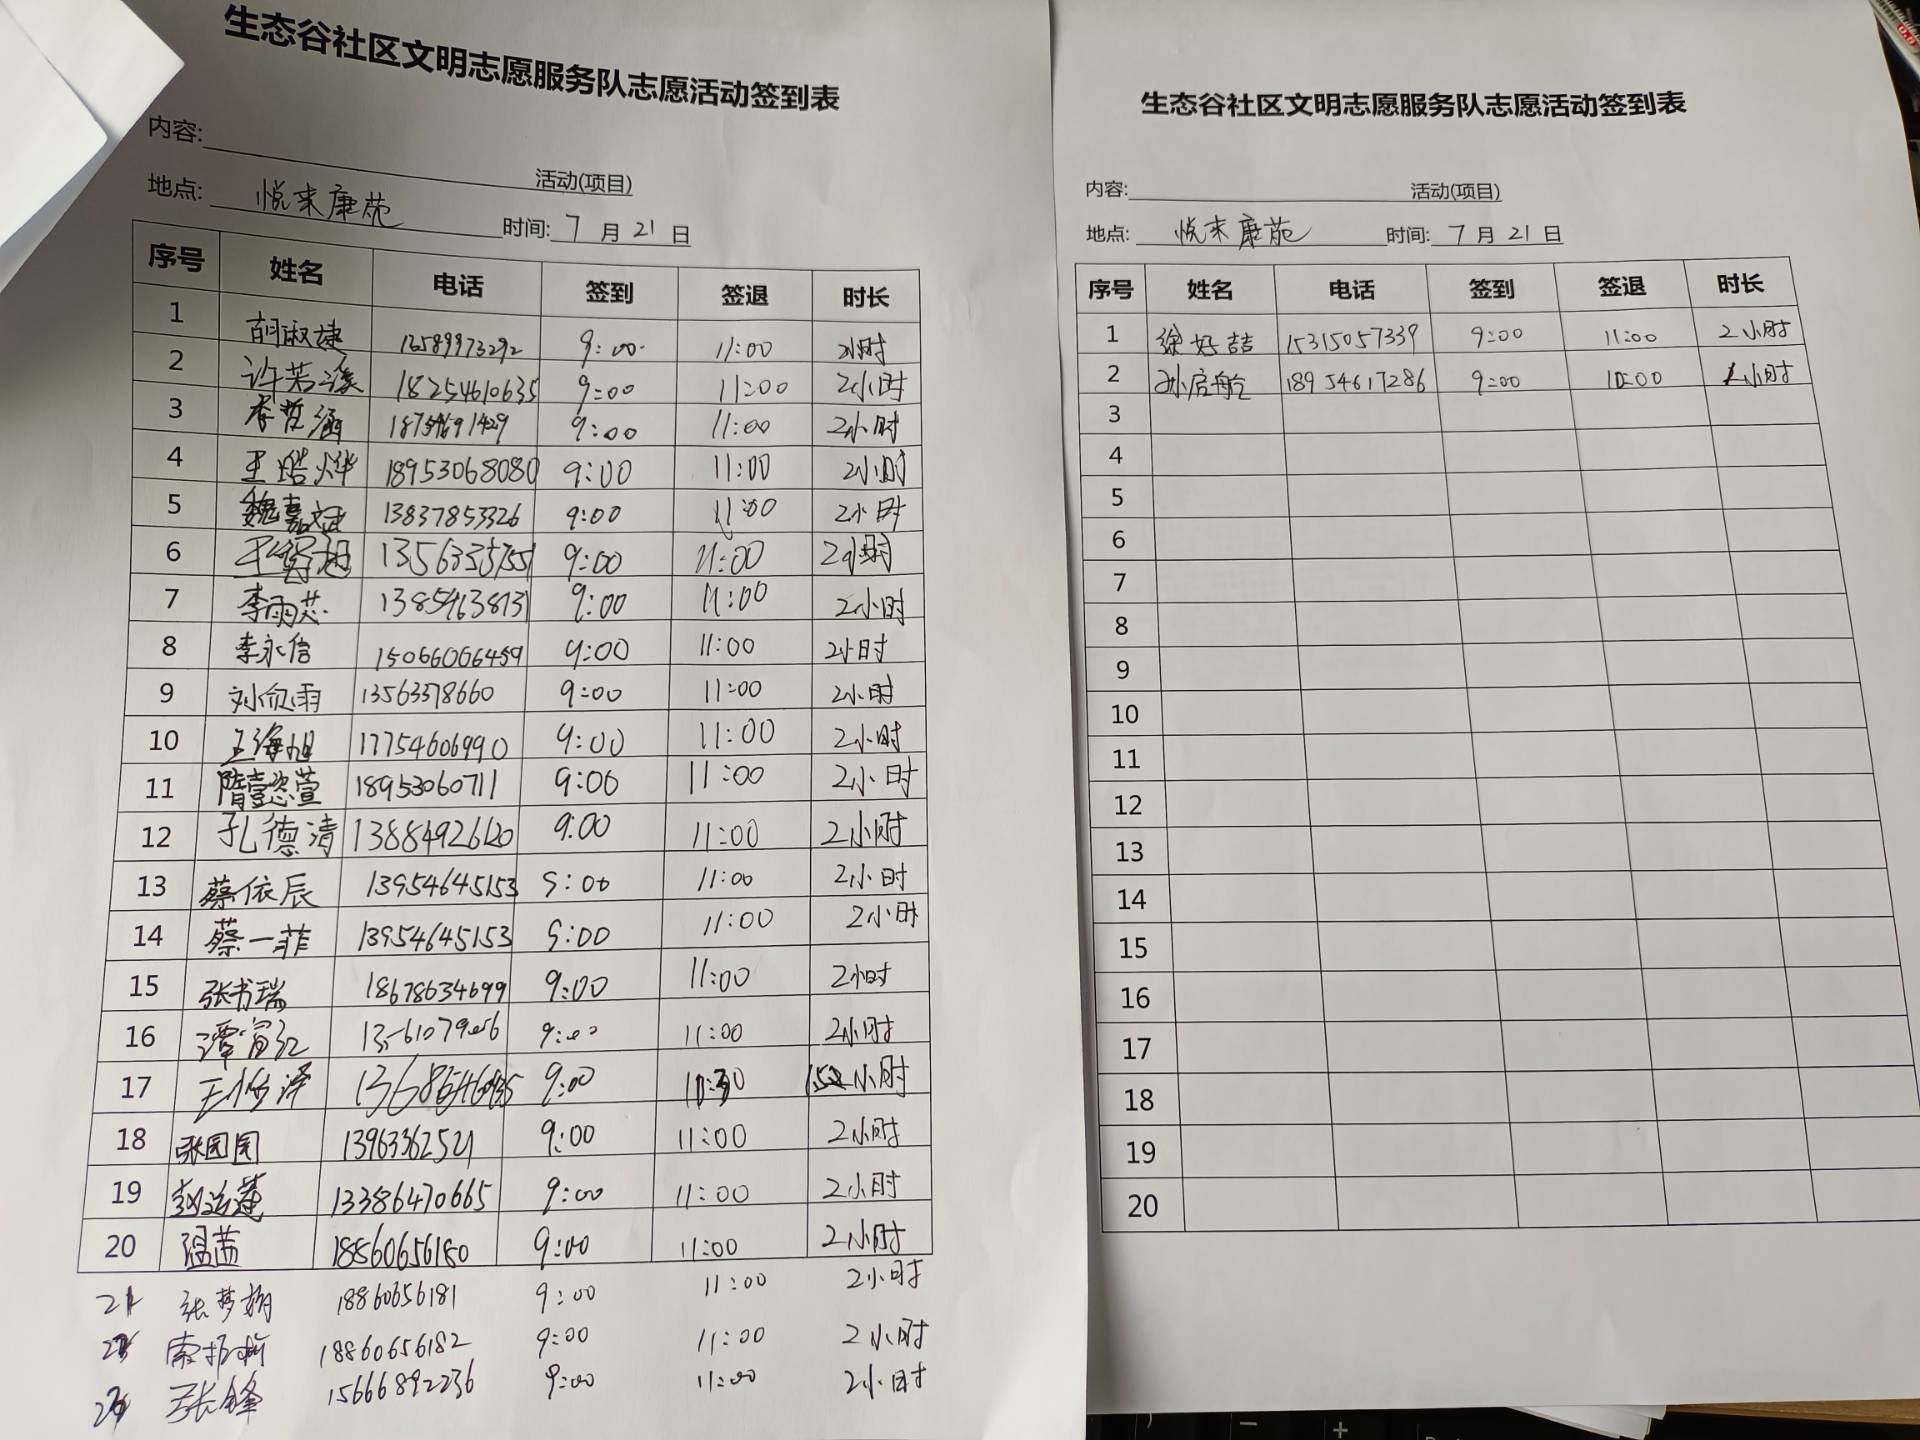 生态谷社区文明志愿服务队志愿活动签到表
内容: 活动(项目)
地点: 悦来康苑 时间: 7 月 21 日
序号 姓名 电话 签到 签退 时长
1 胡淑婕 9:00 11:00 2小时
2 许若溪 18254610635 9:00 11:00 2小时
3 李哲涵 9:00 11:00 2小时
4 王皓烨 18953068080 9:00 11:00 2小时
5 魏嘉斌 13837853326 9:00 11:00 2小时
6 9:00 11:00 2小时
7 李雨芯 13854638131 9:00 11:00 2小时
8 李永信 15066006459 9:00 11:00 2小时
9 刘欣雨 13563378660 9:00 11:00 2小时
10 王海旭 17754606990 9:00 11:00 2小时
11 隋壹恣萱 18953060711 9:00 11:00 2小时
12 孔德清 13884926120 9:00 11:00 2小时
13 蔡依辰 13954645153 9:00 11:00 2小时
14 蔡一菲 13954645153 9:00 11:00 2小时
15 张书瑞 18678634699 9:00 11:00 2小时
16 9:00 11:00 2小时
17 9:00 小时
18 张园园 13963362521 9:00 11:00 2小时
19 赵运莲 13386470665 9:00 11:00 2小时
20 温茜 18560656180 9:00 11:00 2小时
21 张梦娟 18860656181 9:00 11:00 2小时
18860656182 9:00 11:00 2小时
张锋 15666892236 9:00 11:00 2小时
生态谷社区文明志愿服务队志愿活动签到表
内容: 活动(项目)
地点: 悦来康苑 时间: 7 月 21 日
序号 姓名 电话 签到 签退 时长
1 徐好喆 15315057339 9:00 11:00 2小时
2 孙启航 18954617286 9:00 10:00 1小时
3
4
5
6
7
8
9
10
11
12
13
14
15
16
17
18
19
20